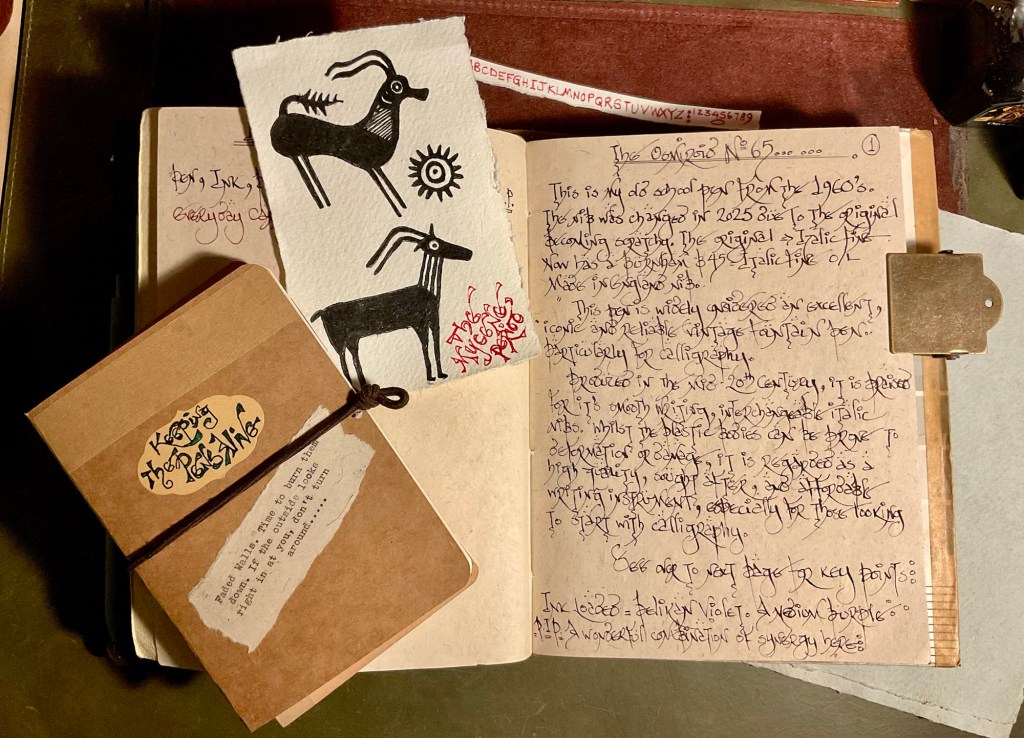 ABCDEFGHIJKLMNOPQRSTUVWXYZ: 123456789
Pen, Ink,
everyday
The
Mycene
Period
Keeping
the Pen
Typed
Faded Walls. Time to burn them
down. If the outside looks
right in at you, don't turn
around.....
The Osmiroid No 65... ... . 1
This is my old school pen from the 1960's.
The nib was changed in 2025 due to the original
becoming scratchy. The original = Italic Fine
Now has a Burnham B45 Italic Fine O/L
Made in England nib.
This pen is widely considered an excellent,
iconic and reliable vintage fountain pen.
Particularly for calligraphy.
Produced in the mid-20th century, it is praised
for it's smooth writing, interchangeable italic
nibs. Whilst the plastic bodies can be prone to
deformation or damage, it is regarded as a
high quality, sought after, and affordable
writing instrument, especially for those looking
to start with calligraphy.
See over to next page for key points:
Ink loaded = Pelikan Violet. A medium purple:
P.I.P. A wonderful combination of synergy here: